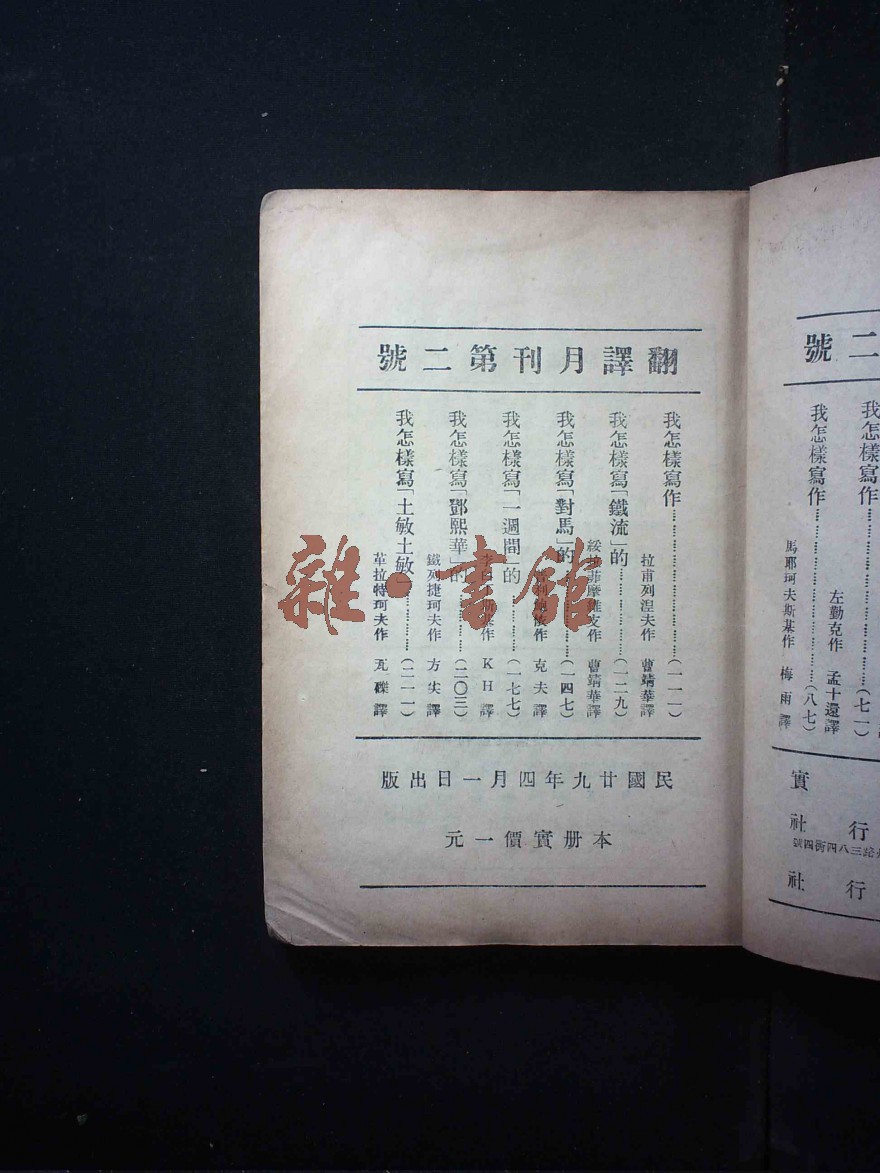 翻譯月刊第二號
我怎樣寫作……(一一一)
拉甫列湼夫作 曹靖華譯
我怎樣寫「鐵流」的……(一二九)
綏拉菲摩維支作 曹靖華譯
我怎樣寫「對馬」的……(一四七)
作 克夫譯
我怎樣寫「一週間」的……(一七七)
作 KH譯
我怎樣寫「鄧熙華」的……(二〇三)
鐵列捷珂夫作 方尖譯
我怎樣寫「土敏土敏」……(二一一)
革拉特珂夫作 瓦礫譯
民國廿九年四月一日出版
本册實價一元
二號
我怎樣寫作……(七一)
左勤克作 孟十還譯
我怎樣寫作……(八七)
馬耶珂夫斯基作 梅雨譯
實
行社
路三八四街四號
行社
雜·書館